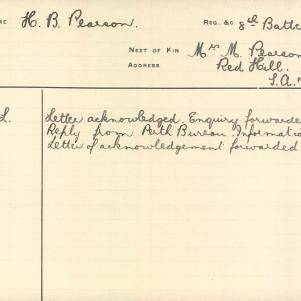 RE H. B. Pearson. REG., &C 8th Battn
NEXT OF KIN Mrs M. Pearson
ADDRESS Red Hill.
S.A.
L. Letter acknowledged. Enquiry forwarde
Reply from Perth Bureau. Informatio
Letter of acknowledgement forwarded